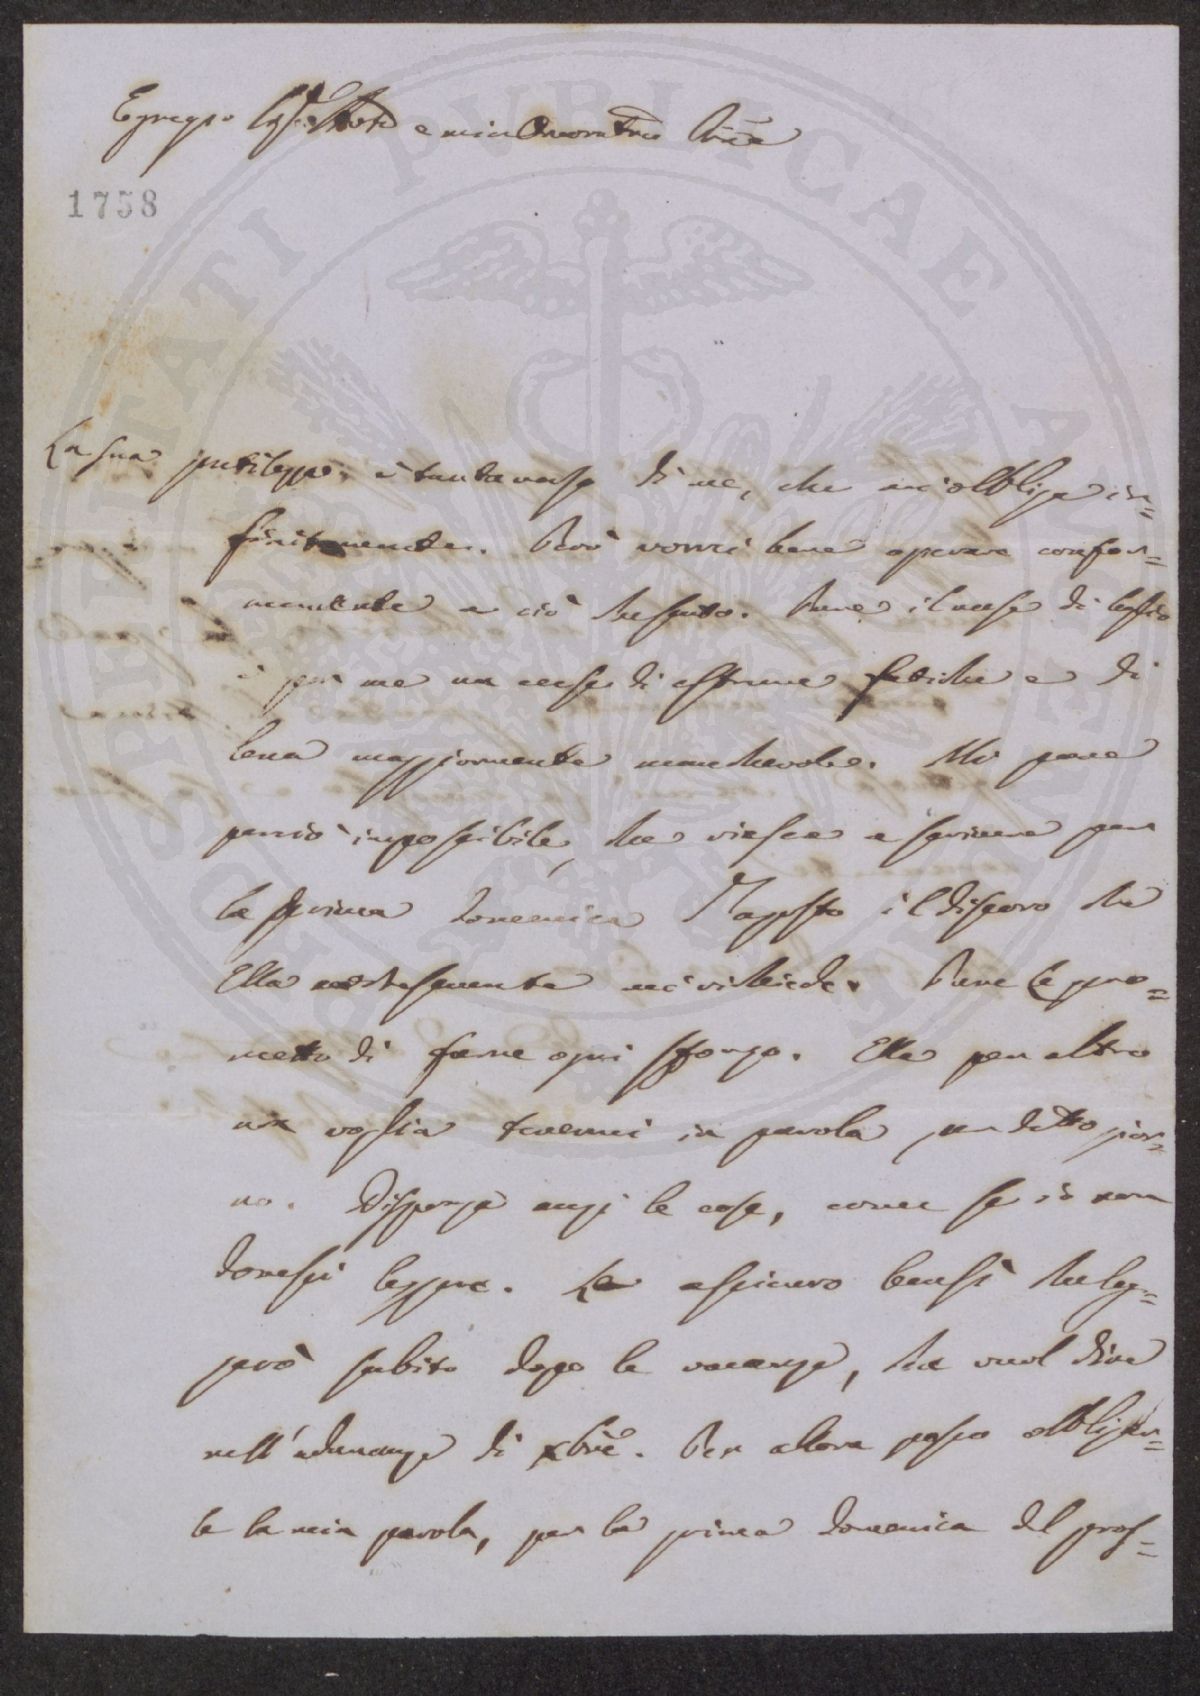 Egregio e mio Onorat.mo
1758
La sua gentilezza è tanta verso di me, che mi obbliga in=
finitamente. Però vorrei bene operare confor=
memente a ciò che sento. Pure il mese di luglio
è per me un mese di estreme fatiche e di
lena maggiormente manchevole. Mi pare
perciò impossibile, che riesca a scrivere per
la prima domenica d'agosto il discorso che
Ella cortesemente mi richiede. Pure Le pro=
metto di farne ogni sforzo. Ella per altro
non voglia tenermi in parola per detto gior=
no. Disponga anzi le cose, come se io non
dovessi leggere. La assicuro bensì che leg=
gerò subito dopo le vacanze, che vuol dire
nell'adunanza di xbre. Per allora posso obbligar=
le la mia parola, per la prima domenica del pros=